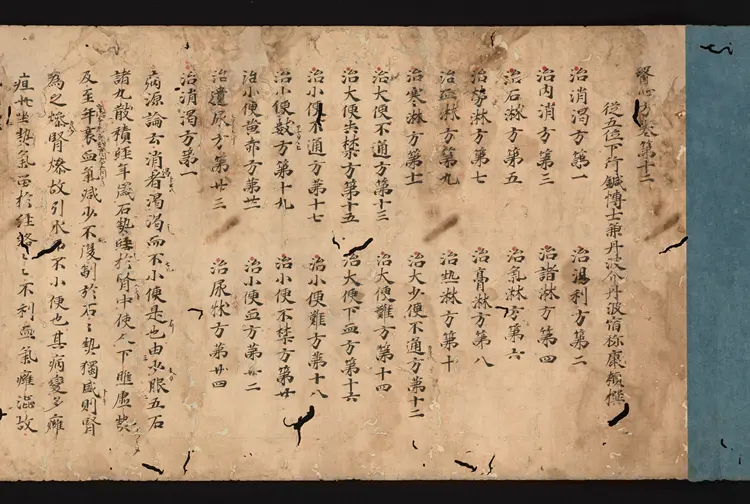 醫心方卷第十二
從五位下行鍼博士兼丹波介丹波宿祢康賴撰
治消渴方第一　治渴利方第二
治内消方第三　治諸淋方第四
治石淋方第五　治氣淋方第六
治勞淋方第七　治膏淋方第八
治血淋方第九　治熱淋方第十
治寒淋方第十一　治大小便不通方第十二
治大便不通方第十三　治大便難方第十四
治大便失禁方第十五　治大便下血方第十六
治小便不通方第十七　治小便難方第十八
治小便數方第十九　治小便不禁方第廿
治小便黄赤方第廿一　治小便血方第廿二
治遺尿方第廿三　治尿牀方第廿四
治消渴方第一
病源論云消者渴渴而不小便是也由少服五石
諸丸散積経年歲石勢結於腎中使人下膲虛熱
及至年衰血氣減少不復制於石〻勢獨盛則腎
為之燥腎燥故引水而不小便也其病變多癰
疽此坐熱氣留於経絡〻〻不利血氣癰澀故